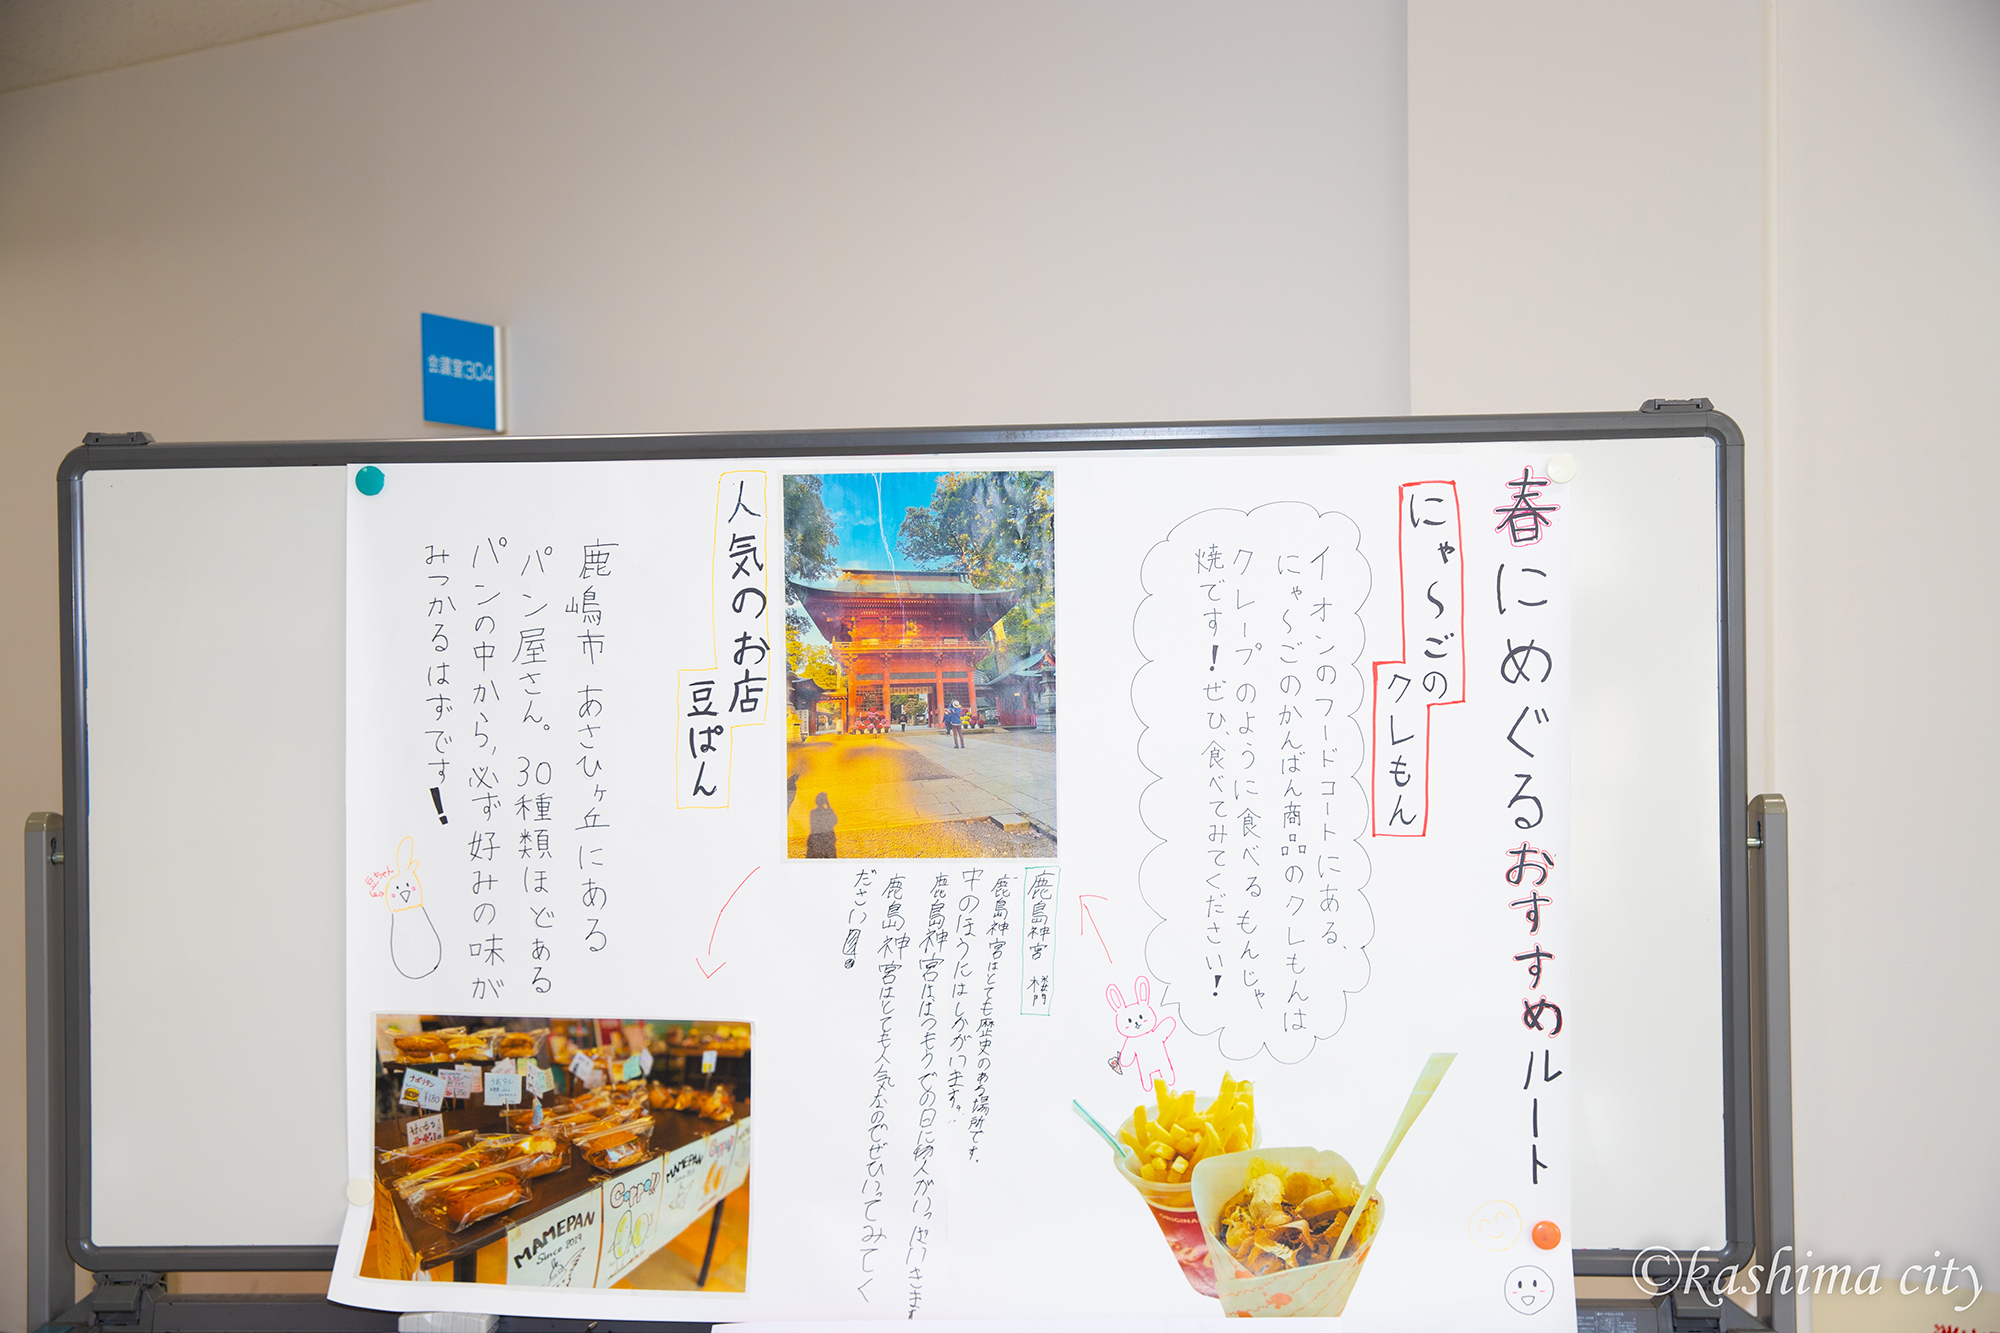 会議室304
春にめぐるおすすめルート
にゃ〜ごの
クレもん
イオンのフードコートにある、
にゃ〜ごのかんばん商品のクレもんは
クレープのように食べるもんじゃ
焼です！ぜひ、食べてみてください！
鹿島神宮 楼門
鹿島神宮はとても歴史のある場所です。
中のほうにはしかがいます。
鹿島神宮ははつもうでの日に物人がいっぱいきます
鹿島神宮はとても人気なのでぜひいってみてく
ださい
人気のお店
豆ぱん
鹿嶋市 あさひヶ丘にある
パン屋さん。30種類ほどある
パンの中から、必ず好みの味が
みつかるはずです！
豆ちゃん
ナポリタン
¥180
MAMEPAN
Since 2019
Coppe!!
MAMEPAN
ORIGINAL
©kashima city